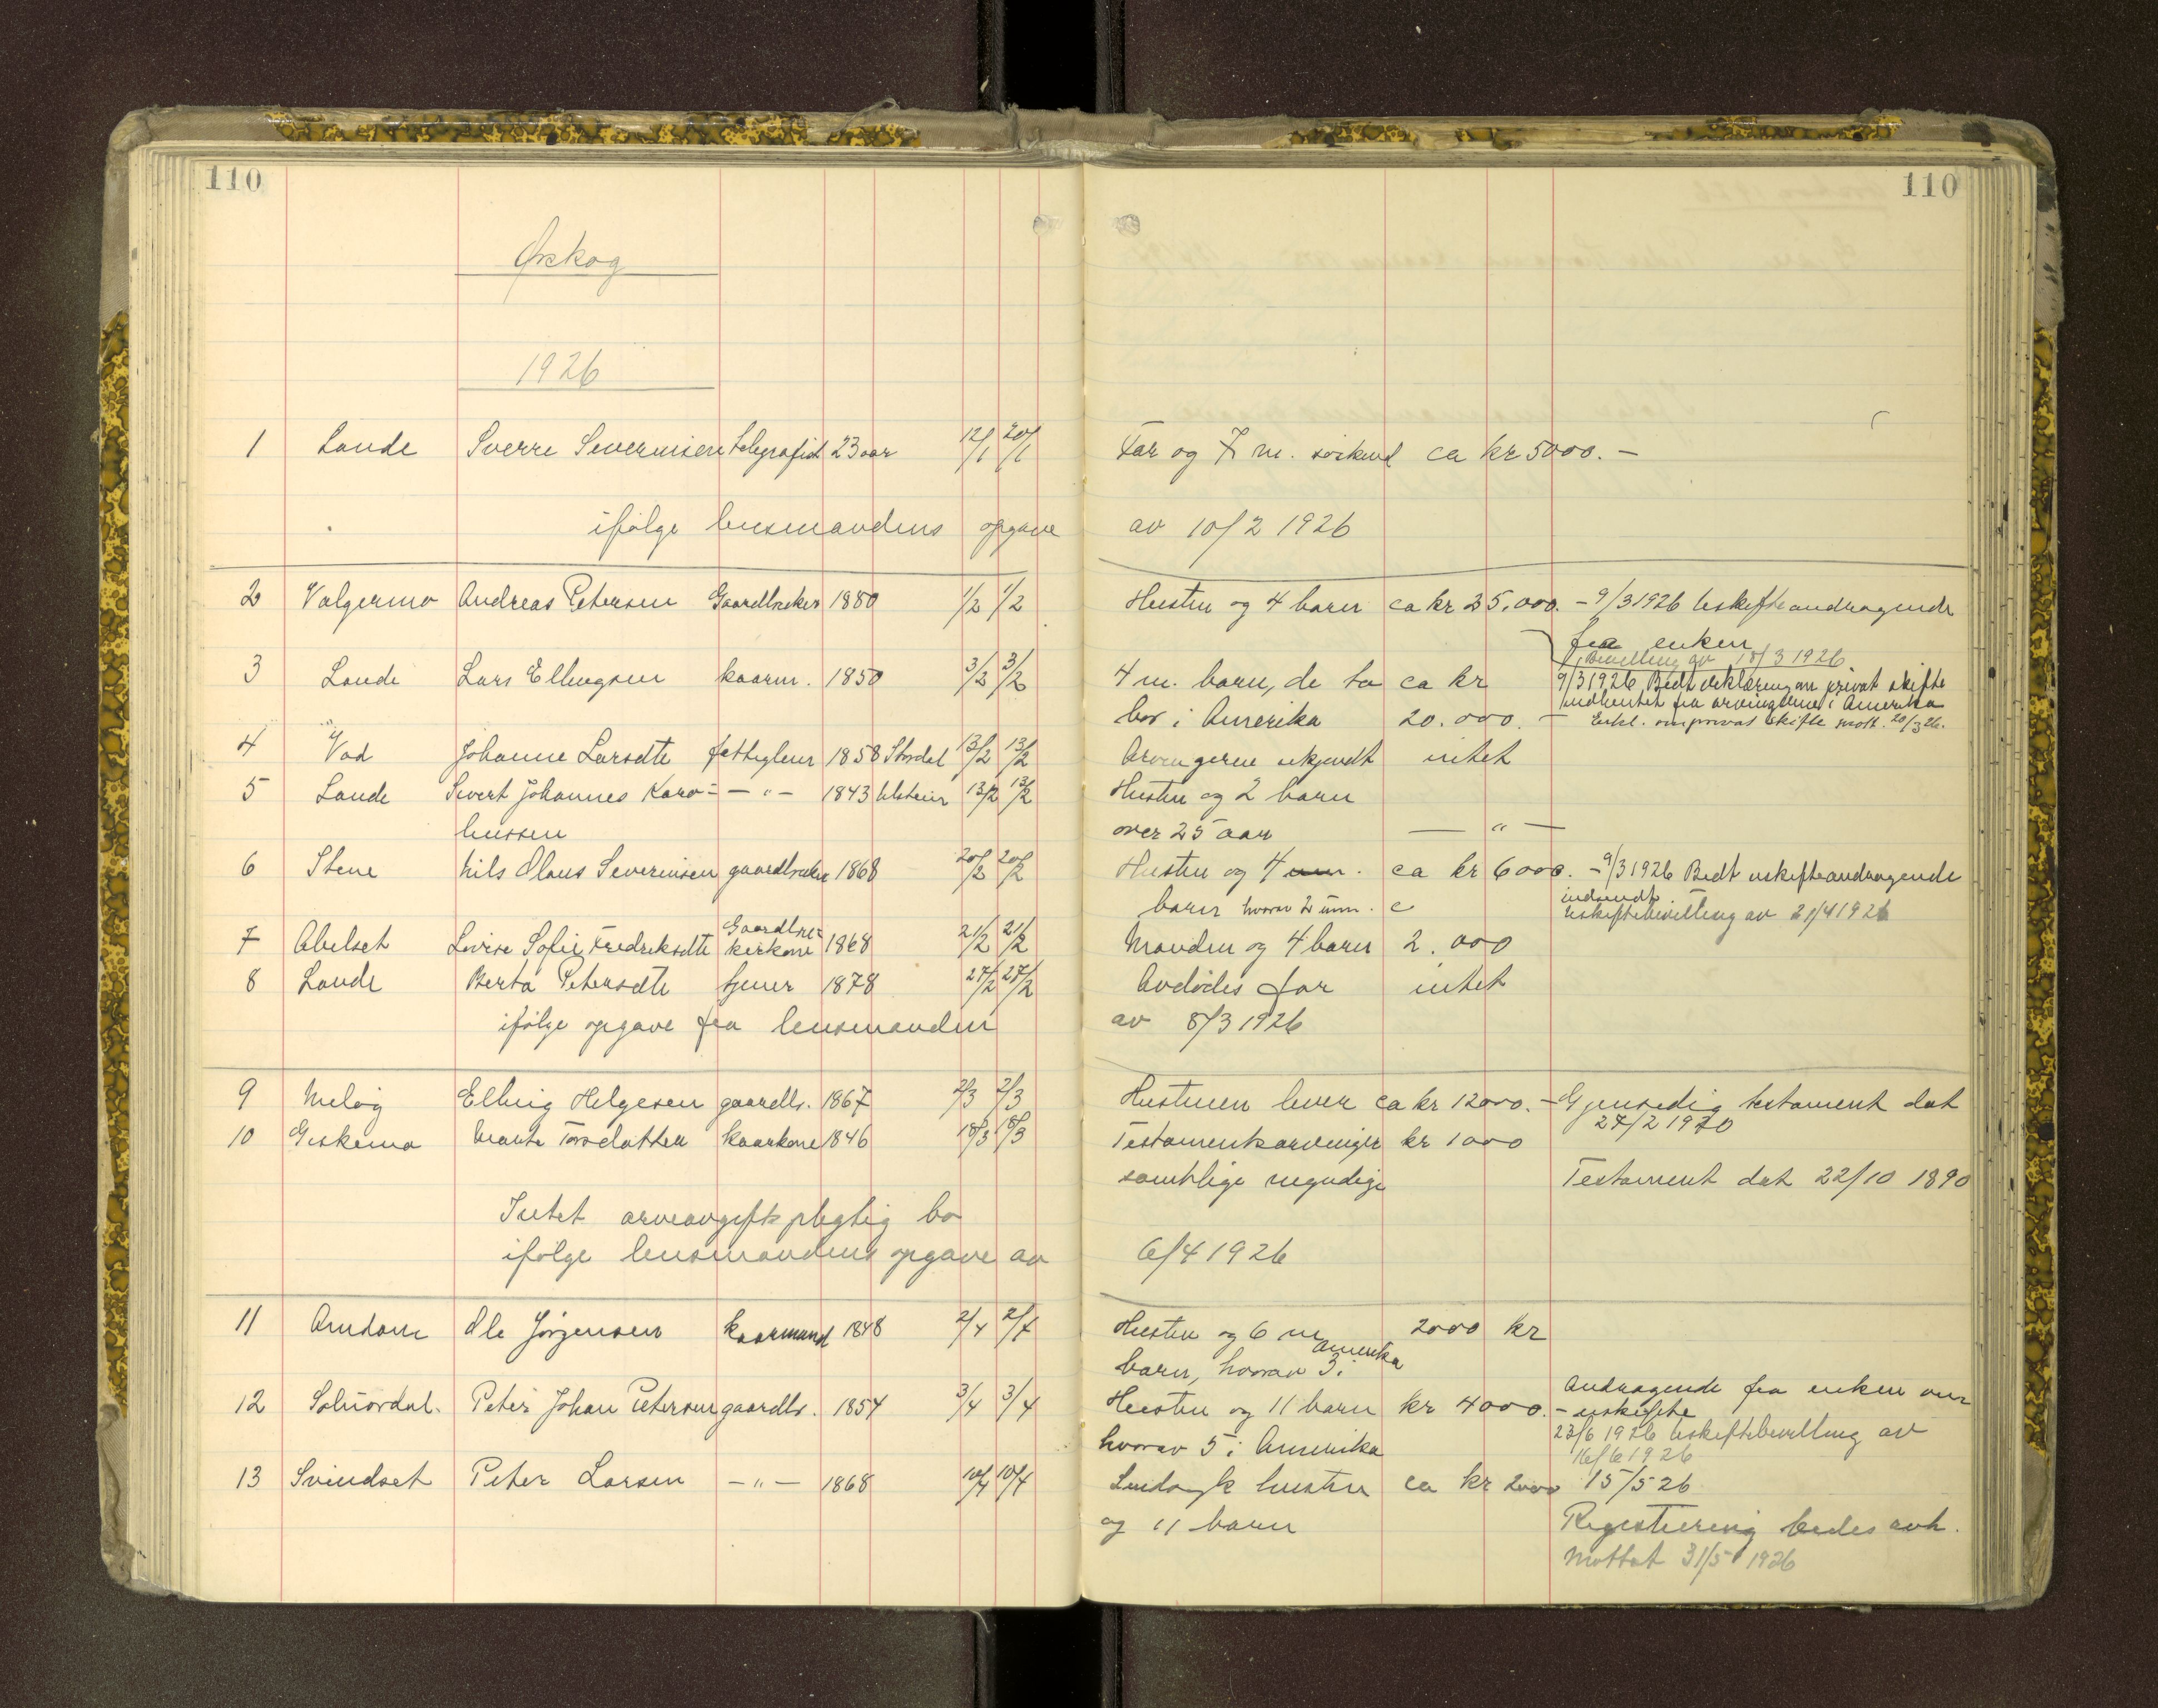 110
110
Ørskog
1926
1 Lande Sverre Severinsen telegrafist 23 aar 12/1 20/1 Far og 7 m. søskend ca kr 5000. –
ifølge lensmandens opgave av 10/2 1926
2 Valgermo Andreas Petersen Gaardbruker 1880 1/2 1/2 Hustru og 4 barn ca kr 25.000. – 9/3 1926 Uskifteandragende
fra enken
Bevilling av 18/3 1926
3 Lande Lars Ellingsen kaarm. 1850 3/2 3/2 4 m. barn, de to ca kr 9/3 1926 Bedt erklæring om privat skifte
bor i Amerika 20.000. – indhentet fra arvingerne i Amerika
Erkl. om privat skifte mott. 20/3 26.
4 Vad Johanne Larsdtr fattiglem 1858 Stordal 13/2 13/2 Arvingerne ukjendt intet
5 Lande Sivert Johannes Karo= – " – 1843 Ulstein 13/2 13/2 Hustru og 2 barn
liussen over 25 aar — " —
6 Stene Nils Olaus Severinsen gaardbruker 1868 20/2 20/2 Hustru og 4 ca kr 6000. – 9/3 1926 Bedt uskifteandragende
barn hvorav 2 um. indsendt
Uskiftebevilling av 21/4 1926
7 Abelset Lovise Sofie Fredriksdtr Gaardbru=
kerkone 1868 21/2 21/2 Manden og 4 barn 2.000
8 Lande Berta Petersdtr tjener 1878 27/2 27/2 Avdødes far intet
ifølge opgave fra lensmanden av 8/3 1926
9 Meløg Elling Helgesen gaardbr. 1867 2/3 2/3 Hustruen lever ca kr 12000. – Gjensidig testament dat
27/2 1910
10 Giskemo Marte Torsdatter kaarkone 1846 18/3 18/3 Testamentsarvinger kr 1000
samtlige myndige Testament dat 22/10 1890
Intet arveavgiftspligtig bo
ifølge lensmandens opgave av 6/4 1926
11 Amdam Ole Jørgensen kaarmand 1848 2/4 2/4 Hustru og 6 m 2000 kr
barn, hvorav 3 i Amerika
12 Solnørdal. Peter Johan Petersen gaardbr. 1854 3/4 3/4 Hustru og 11 barn kr 4000. – Andragende fra enken om
uskifte
hvorav 5 i Amerika 23/6 1926 Uskiftebevilling av
16/6 1926
13 Svindset Peter Larsen – " – 1868 10/4 10/4 hustru ca kr 2000 15/5 26
og 11 barn Registrering bedes avh.
Mottat 31/5 1926